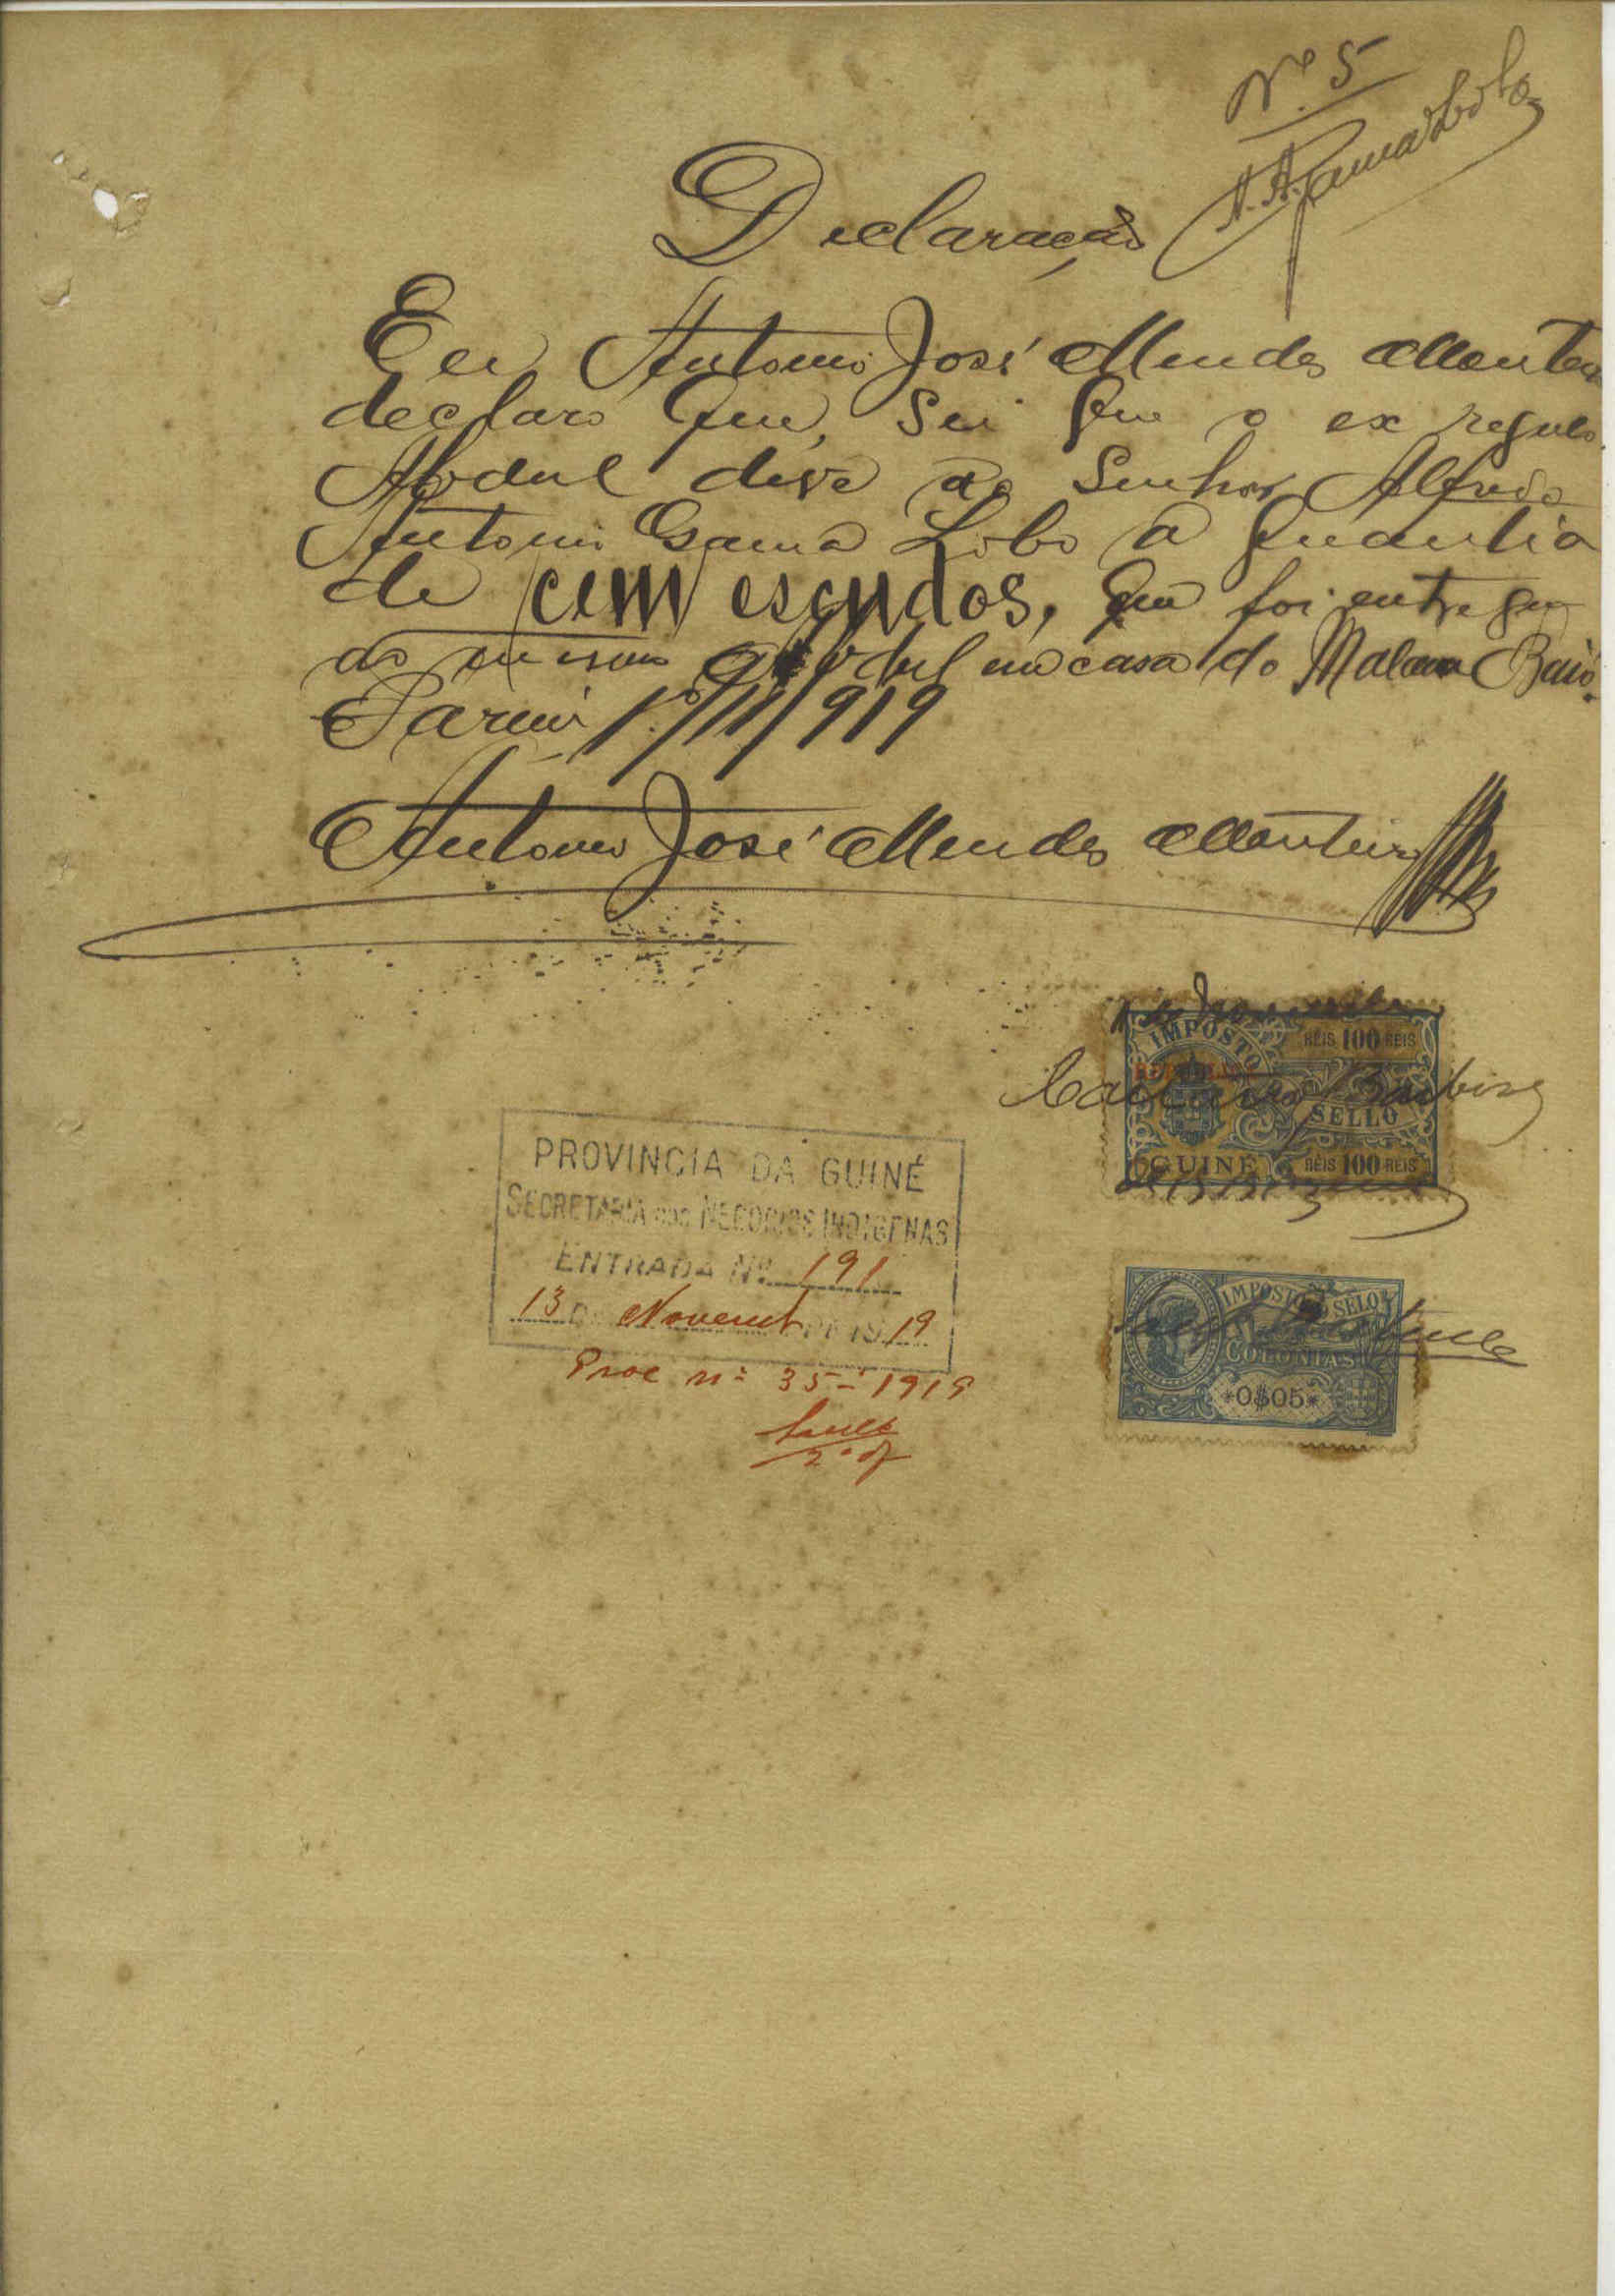 Nº 5
A. A. Gama Lobo
Declaração
Eu Antonio José Mendes Monteiro
declaro que, sei que o ex regulo
Abdul deve ao Senhor Alfredo
Antonio Gama Lobo a quantia
de cem escudos, que foi entregue
ao mesmo Abdul em casa do Malam Baió.
Farim 1º/11/919
Antonio José Mendes Monteiro
IMPOSTO
RÉIS 100 RÉIS
REPUBLICA
SELLO
GUINÉ
RÉIS 100 RÉIS
PROVINCIA DA GUINÉ
SECRETARIA DOS NEGOCIOS INDIGENAS
ENTRADA Nº 191
13 DE Novemb DE 1919
Proc nº 35-1919
2º of
IMPOSTO DO SELO
COLONIAS
0$05